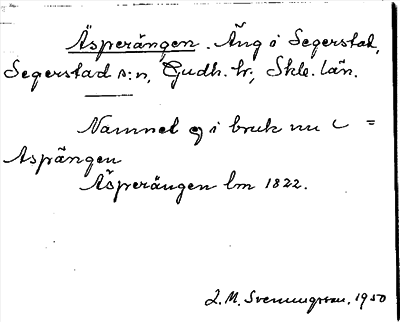 Äsperängen. Äng i Segerstad,
Segerstad s:n, Gudh. hr, Skbl. län.
Namnet ej i bruk nu =
Aspängen
Äsperängen lm 1822.
L. M. Svenungsson, 1950